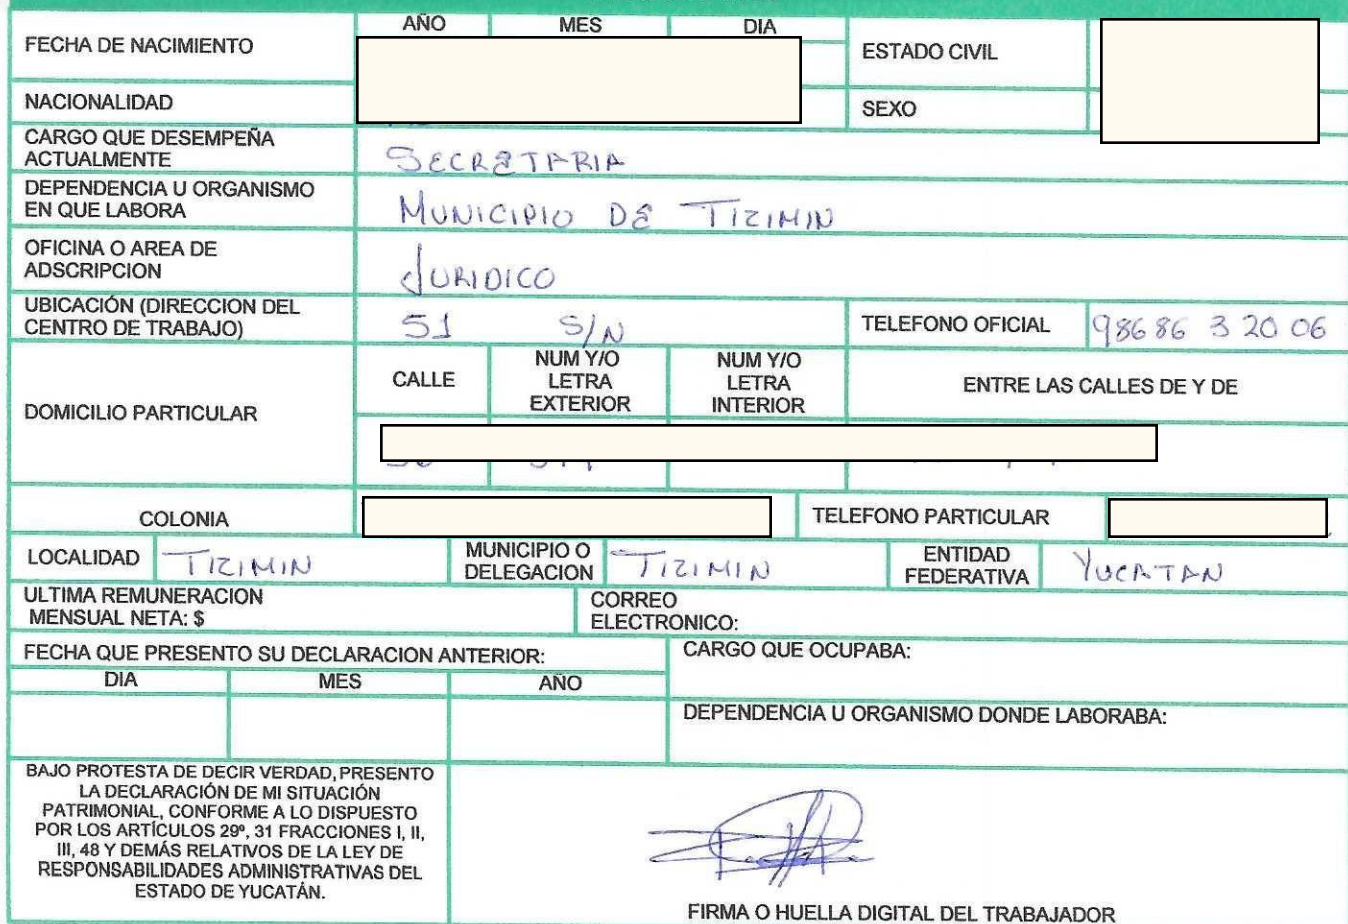 AÑO MES DIA
FECHA DE NACIMIENTO ESTADO CIVIL
NACIONALIDAD SEXO
CARGO QUE DESEMPEÑA
ACTUALMENTE
SECRETARIA
DEPENDENCIA U ORGANISMO
EN QUE LABORA
MUNICIPIO DE TIZIMIN
OFICINA O AREA DE
ADSCRIPCION
JURIDICO
UBICACIÓN (DIRECCION DEL
CENTRO DE TRABAJO)
51 S/N
TELEFONO OFICIAL 98686 3 20 06
DOMICILIO PARTICULAR
CALLE
NUM Y/O
LETRA
EXTERIOR
NUM Y/O
LETRA
INTERIOR
ENTRE LAS CALLES DE Y DE
COLONIA TELEFONO PARTICULAR
LOCALIDAD TIZIMIN
MUNICIPIO O
DELEGACION
TIZIMIN
ENTIDAD
FEDERATIVA
YUCATAN
ULTIMA REMUNERACION
MENSUAL NETA: $
CORREO
ELECTRONICO:
FECHA QUE PRESENTO SU DECLARACION ANTERIOR:
CARGO QUE OCUPABA:
DIA MES AÑO
DEPENDENCIA U ORGANISMO DONDE LABORABA:
BAJO PROTESTA DE DECIR VERDAD, PRESENTO
LA DECLARACIÓN DE MI SITUACIÓN
PATRIMONIAL, CONFORME A LO DISPUESTO
POR LOS ARTÍCULOS 29º, 31 FRACCIONES I, II,
III, 48 Y DEMÁS RELATIVOS DE LA LEY DE
RESPONSABILIDADES ADMINISTRATIVAS DEL
ESTADO DE YUCATÁN.
FIRMA O HUELLA DIGITAL DEL TRABAJADOR